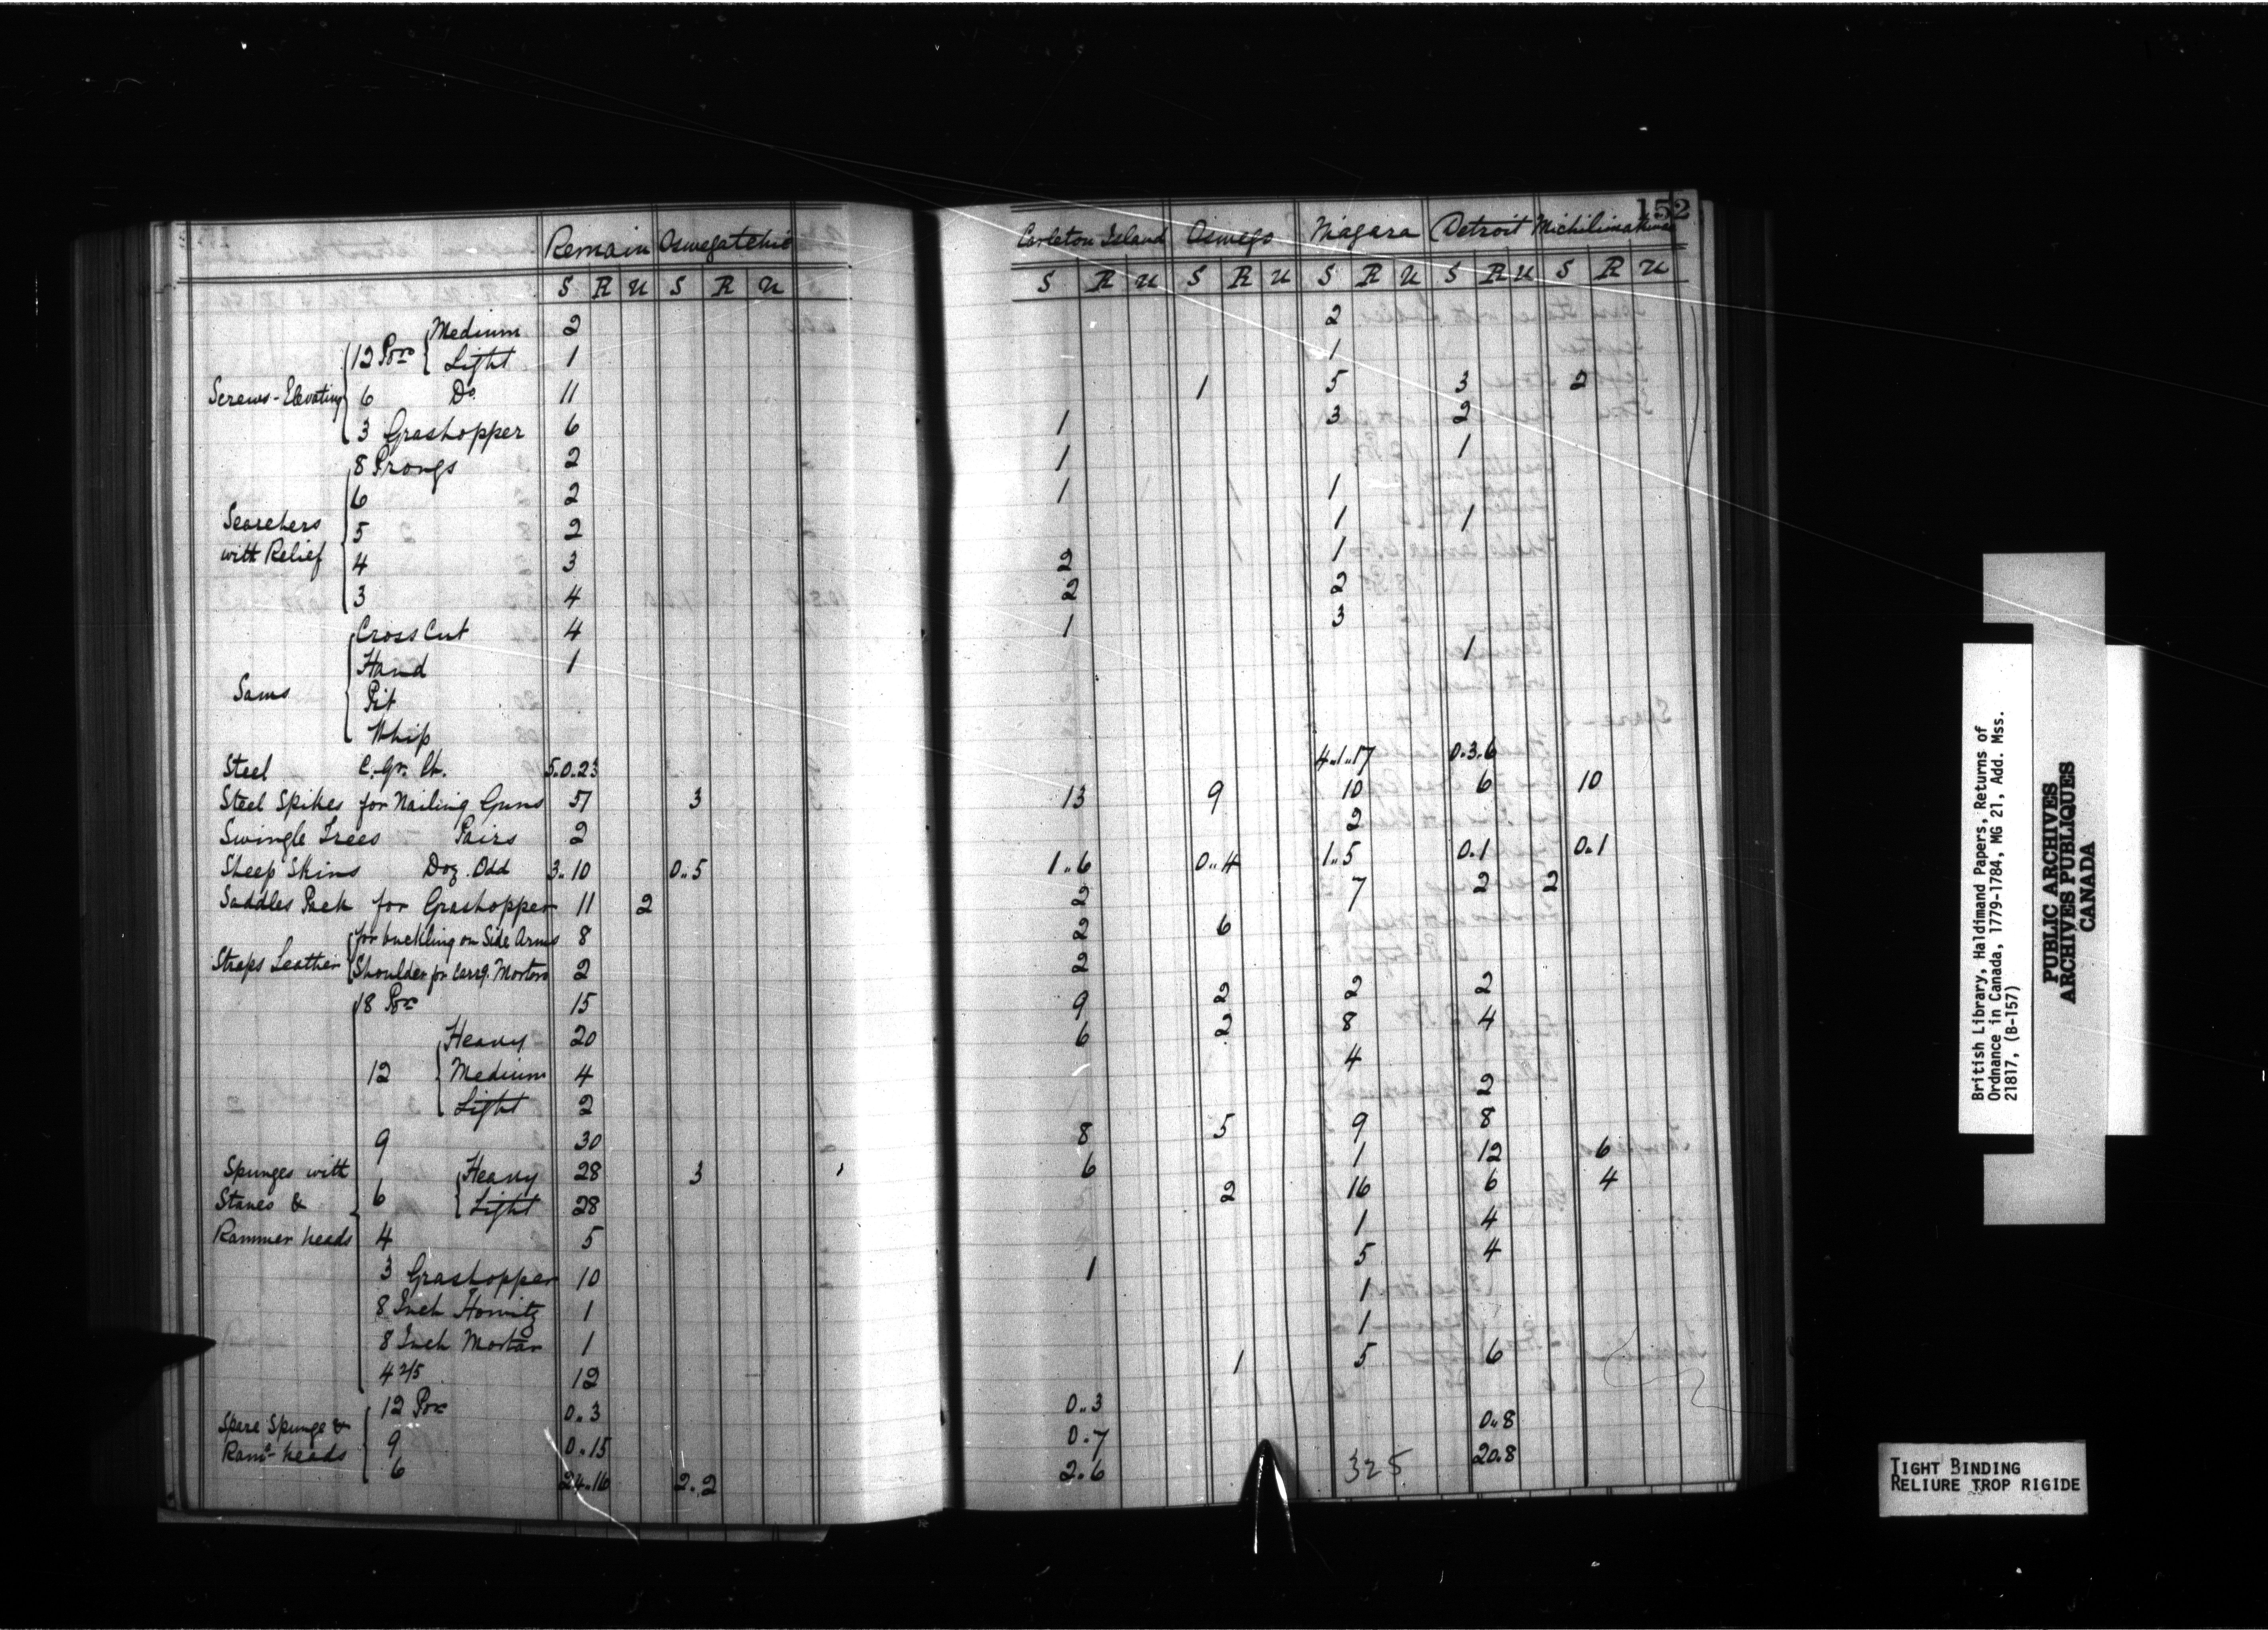 152
Remain Oswegatchie Carleton Island Oswego Niagara Detroit
S R U S R U S R U S R U S R U S R U S R U
12 Por Medium 2 2
Light 1 1
Screws-Elevating 6 Do. 11 1 5 3 2
3 Grashopper 6 1 3 2
8 Prongs 2 1 1
6 2 1 1
Searchers 5 2 1 1
with Relief 4 3 2 1
3 4 2 2
Cross Cut 4 1 3
Hand 1 1
Saws Pit
Whip
Steel C. Qr. lb. 5.0.23 4..1..17 0.3.6
Steel Spikes for Nailing Guns 51 3 13 9 10 6 10
Swingle Trees Pairs 2 2
Sheep Skins Doz. Odd 3..10 0..5 1..6 0..4 1..5 0.1 0..1
Saddles Pack for Grashopper 11 2 2 7 2 2
Straps Leather for buckling on Side Arms 8 2 6
Shoulder for carrg. Mortars 2 2
18 Por 15 9 2 2 2
12 Heavy 20 6 2 8 4
Medium 4 4
Light 2 2
9 30 8 5 9 8
Spunges with 6 Heavy 28 3 6 1 12 6
Staves & Light 28 2 16 6 4
Rammer heads 4 5 1 4
3 Grashopper 10 1 5 4
8 Inch Howitz 1 1
8 Inch Mortar 1 1
4 2/5 12 1 5 6
Spare Spunge & 12 Por 0..3 0..3
Ramr heads 9 0.15 0.7 0..8
6 24.16 2..2 2.6 20.8
325
British Library, Haldimand Papers, Returns of
Ordnance in Canada, 1779-1784, MG 21, Add. Mss.
21817, (B-157)
PUBLIC ARCHIVES
ARCHIVES PUBLIQUES
CANADA
TIGHT BINDING
RELIURE TROP RIGIDE